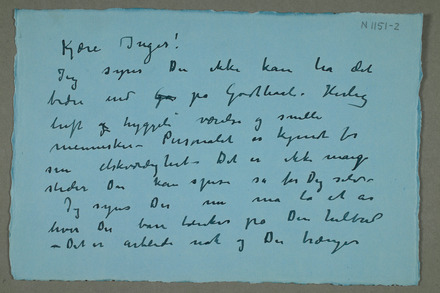 N 1151-2
Kjære Inger!
Jeg synes Du ikke kan ha det
bedre end på Godthaab. Herlig
luft og hyggelig værelse og snille
mennesker. Personalet er kjendt for
sin elskværdighet. Det er ikke mange
steder Du kan spise så for Dig selv.
Jeg synes Du nu må ta et år
hvor Du bare tænker på Din helbred
– Det er arbeide nok og Du trænger